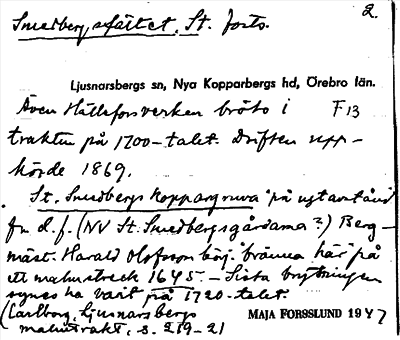 Smedbergsfältet, St. forts.
2.
Ljusnarsbergs sn, Nya Kopparbergs hd, Örebro län.
Även Hälleforsverken bröto i F 13
trakten på 1700-talet. Driften upp-
hörde 1869.
St. Smedbergs koppargruva på nytt avstånd
fr. d.f. (NV St. Smedbergsgårdarna?) Berg-
mäst. Harald Olofsson börj. bränna här på
ett malmstreck 1645. - Sista brytningen
synes ha varit på 1720-talet.
(Carlborg, Ljusnarsbergs
malmtrakt, s. 219-21
MAJA FORSSLUND 1947